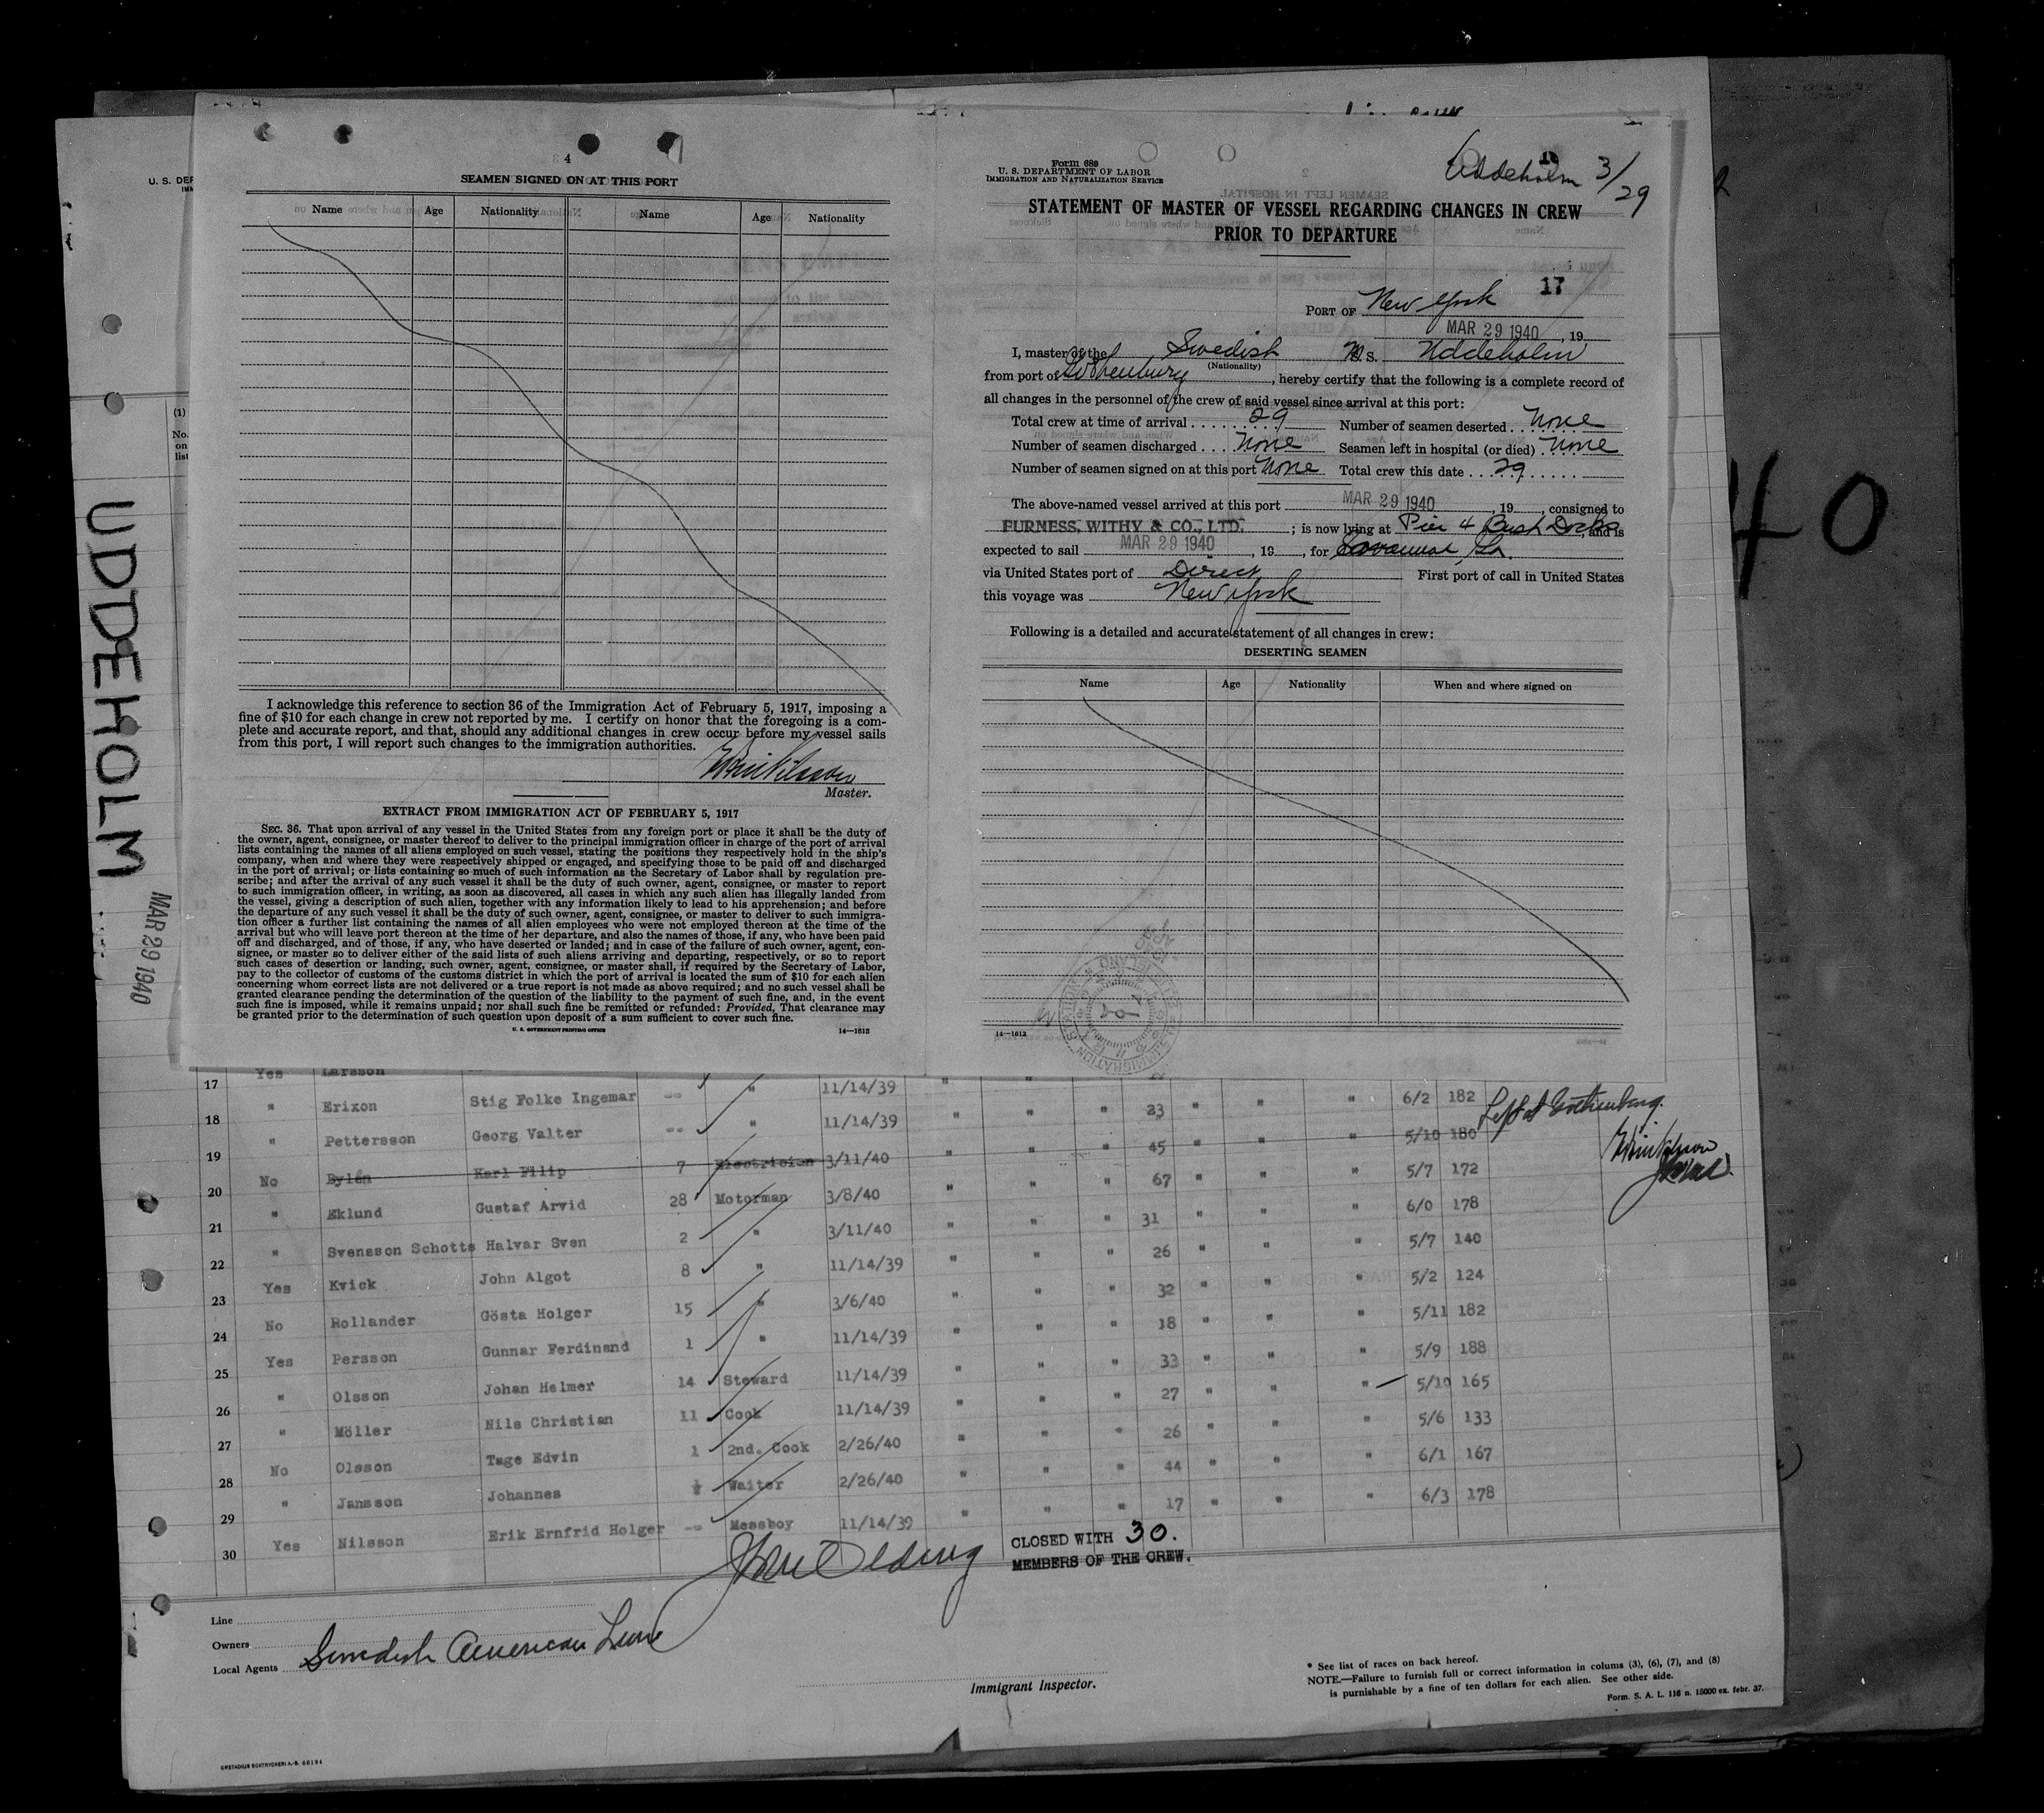 4
SEAMEN SIGNED ON AT THIS PORT
Name Age Nationality Name Age Nationality
I acknowledge this reference to section 36 of the Immigration Act of February 5, 1917, imposing a
fine of $10 for each change in crew not reported by me. I certify on honor that the foregoing is a com-
plete and accurate report, and that, should any additional changes in crew occur before my vessel sails
from this port, I will report such changes to the immigration authorities.
Master.
EXTRACT FROM IMMIGRATION ACT OF FEBRUARY 5, 1917
SEC. 36. That upon arrival of any vessel in the United States from any foreign port or place it shall be the duty of
the owner, agent, consignee, or master thereof to deliver to the principal immigration officer in charge of the port of arrival
lists containing the names of all aliens employed on such vessel, stating the positions they respectively hold in the ship's
company, when and where they were respectively shipped or engaged, and specifying those to be paid off and discharged
in the port of arrival; or lists containing so much of such information as the Secretary of Labor shall by regulation pre-
scribe; and after the arrival of any such vessel it shall be the duty of such owner, agent, consignee, or master to report
to such immigration officer, in writing, as soon as discovered, all cases in which any such alien has illegally landed from
the vessel, giving a description of such alien, together with any information likely to lead to his apprehension; and before
the departure of any such vessel it shall be the duty of such owner, agent, consignee, or master to deliver to such immigra-
tion officer a further list containing the names of all alien employees who were not employed thereon at the time of the
arrival but who will leave port thereon at the time of her departure, and also the names of those, if any, who have been paid
off and discharged, and of those, if any, who have deserted or landed; and in case of the failure of such owner, agent, con-
signee, or master so to deliver either of the said lists of such aliens arriving and departing, respectively, or so to report
such cases of desertion or landing, such owner, agent, consignee, or master shall, if required by the Secretary of Labor,
pay to the collector of customs of the customs district in which the port of arrival is located the sum of $10 for each alien
concerning whom correct lists are not delivered or a true report is not made as above required; and no such vessel shall be
granted clearance pending the determination of the question of the liability to the payment of such fine, and, in the event
such fine is imposed, while it remains unpaid; nor shall such fine be remitted or refunded: Provided, That clearance may
be granted prior to the determination of such question upon deposit of a sum sufficient to cover such fine.
U. S. GOVERNMENT PRINTING OFFICE 14—1613
Form 689
U. S. DEPARTMENT OF LABOR
IMMIGRATION AND NATURALIZATION SERVICE
Uddeholm 3/29
STATEMENT OF MASTER OF VESSEL REGARDING CHANGES IN CREW
PRIOR TO DEPARTURE
17
PORT OF New York
MAR 29 1940, 19
I, master of the Swedish M. S. Uddeholm
(Nationality)
from port of Gothenburg, hereby certify that the following is a complete record of
all changes in the personnel of the crew of said vessel since arrival at this port:
Total crew at time of arrival 29 Number of seamen deserted None
Number of seamen discharged None Seamen left in hospital (or died) None
Number of seamen signed on at this port None Total crew this date 29
The above-named vessel arrived at this port MAR 29 1940, 19, consigned to
FURNESS, WITHY & CO., LTD.; is now lying at Pier 4 Bush Docks, and is
expected to sail MAR 29 1940, 19, for Savannah, Ga.
via United States port of Direct First port of call in United States
this voyage was New York
Following is a detailed and accurate statement of all changes in crew:
DESERTING SEAMEN
Name Age Nationality When and where signed on
14—1613
UDDEHOLM
MAR 29 1940
40
U. S. DEP
(1)
No.
on
list
17 Yes Larsson
18 " Erixon Stig Folke Ingemar -- " 11/14/39 " " " 23 " " " 6/2 182
19 " Pettersson Georg Valter -- " 11/14/39 " " " 45 " " " 5/10 180 Left at Gothenburg.
20 No Bylén Karl Filip 7 Electrician 3/11/40 " " " 67 " " " 5/7 172
21 " Eklund Gustaf Arvid 28 Motorman 3/8/40 " " " 31 " " " 6/0 178
22 " Svensson Schotts Halvar Sven 2 " 3/11/40 " " " 26 " " " 5/7 140
23 Yes Kvick John Algot 8 " 11/14/39 " " " 32 " " " 5/2 124
24 No Rollander Gösta Holger 15 " 3/6/40 " " " 18 " " " 5/11 182
25 Yes Persson Gunnar Ferdinand 1 " 11/14/39 " " " 33 " " " 5/9 188
26 " Olsson Johan Helmer 14 Steward 11/14/39 " " " 27 " " " 5/10 165
27 " Möller Nils Christian 11 Cook 11/14/39 " " " 26 " " " 5/6 133
28 No Olsson Tage Edvin 1 2nd. Cook 2/26/40 " " " 44 " " " 6/1 167
29 " Jansson Johannes Waiter 2/26/40 " " " 17 " " " 6/3 178
30 Yes Nilsson Erik Ernfrid Holger -- Messboy 11/14/39
CLOSED WITH 30.
MEMBERS OF THE CREW.
Line
Owners
Local Agents Swedish American Line
Immigrant Inspector.
* See list of races on back hereof.
NOTE.—Failure to furnish full or correct information in colums (3), (6), (7), and (8)
is punishable by a fine of ten dollars for each alien. See other side.
Form. S. A. L. 116 n. 15000 ex. febr. 37.